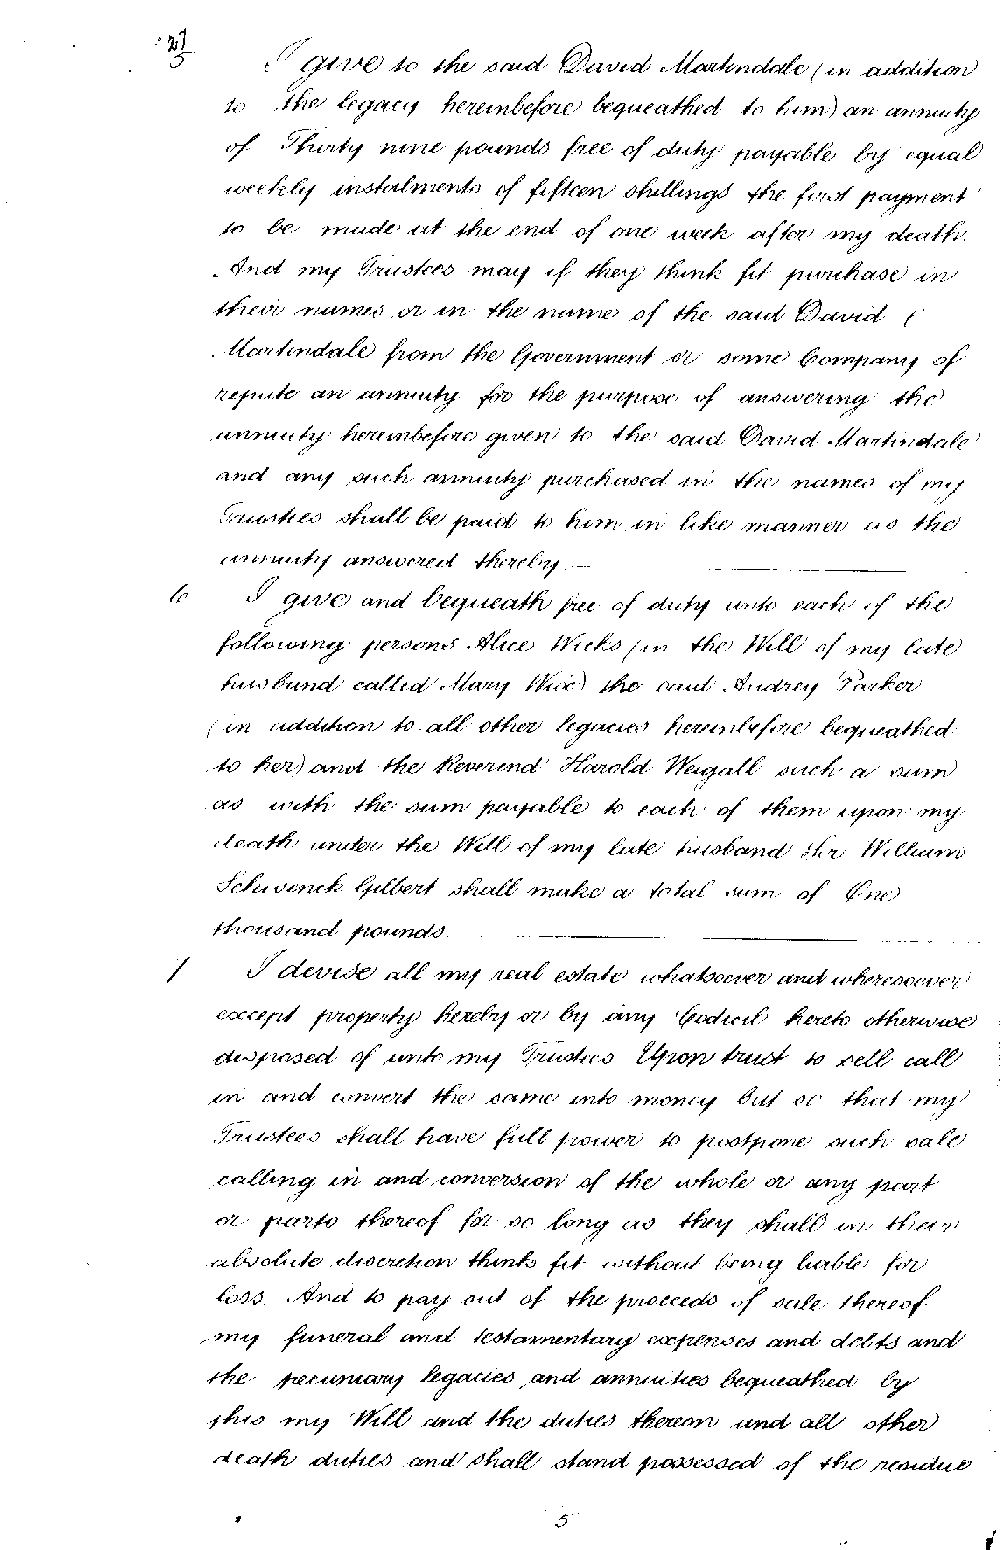 I give to the said David Martindale (in addition
to the legacy hereinbefore bequeathed to him) an annuity
of Thirty nine pounds free of duty payable by equal
weekly instalments of fifteen shillings the first payment
to be made at the end of one week after my death.
And my Trustees may if they think fit purchase in
their names or in the name of the said David (
Martindale from the Government or some Company of
repute an annuity for the purpose of answering the
annuity hereinbefore given to the said David Martindale
and any such annuity purchased in the names of my
Trustees shall be paid to him in like manner as the
annuity answered thereby
6 I give and bequeath free of duty unto each of the
following persons Alice Weeks (in the Will of my late
husband called Mary Wise) the said Audrey Parker
(in addition to all other legacies hereinbefore bequeathed
to her) and the Reverend Harold Weigall such a sum
as with the sum payable to each of them upon my
death under the Will of my late husband Sir William
Schwenck Gilbert shall make a total sum of One
thousand pounds.
7 I devise all my real estate whatsoever and wheresoever
except property hereby or by any Codicil hereto otherwise
disposed of unto my Trustees Upon trust to sell call
in and convert the same into money but so that my
Trustees shall have full power to postpone such sale
calling in and conversion of the whole or any part
or parts thereof for so long as they shall in their
absolute discretion think fit without being liable for
loss. And to pay out of the proceeds of sale thereof
my funeral and testamentary expenses and debts and
the pecuniary legacies and annuities bequeathed by
this my Will and the duties thereon and all other
death duties and shall stand possessed of the residue
5